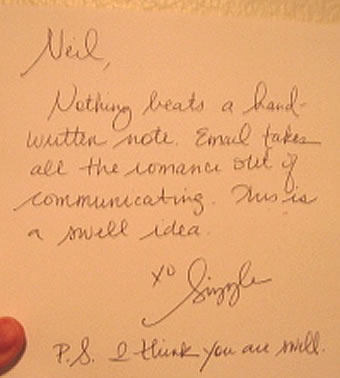 Neil,
Nothing beats a hand-
written note. Email takes
all the romance out of
communicating. This is
a swell idea.
xo Sizzle
P.S. I think you are swell.